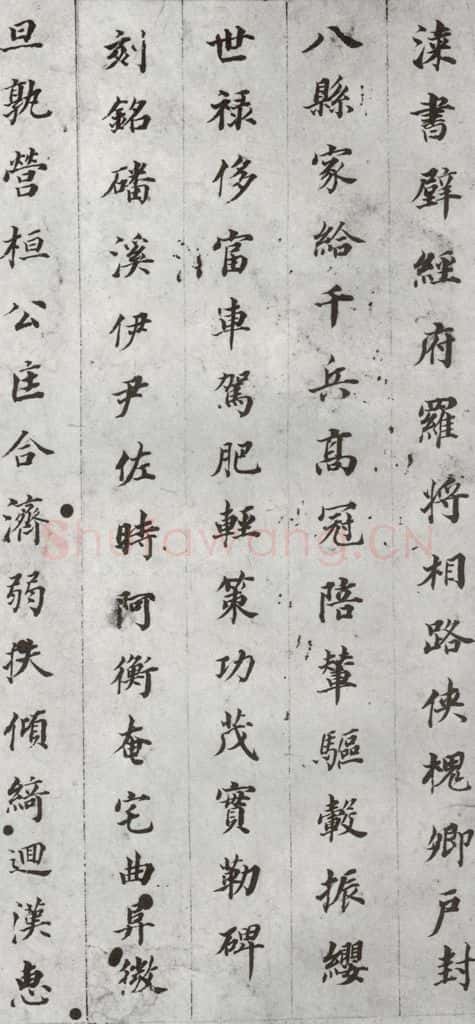 漆書壁經府羅將相路俠槐卿戶封
八縣家給千兵高冠陪輦驅轂振纓
世祿侈富車駕肥輕策功茂實勒碑
刻銘磻溪伊尹佐時阿衡奄宅曲阜微
旦孰營桓公匡合濟弱扶傾綺迴漢惠
Shufawang.CN